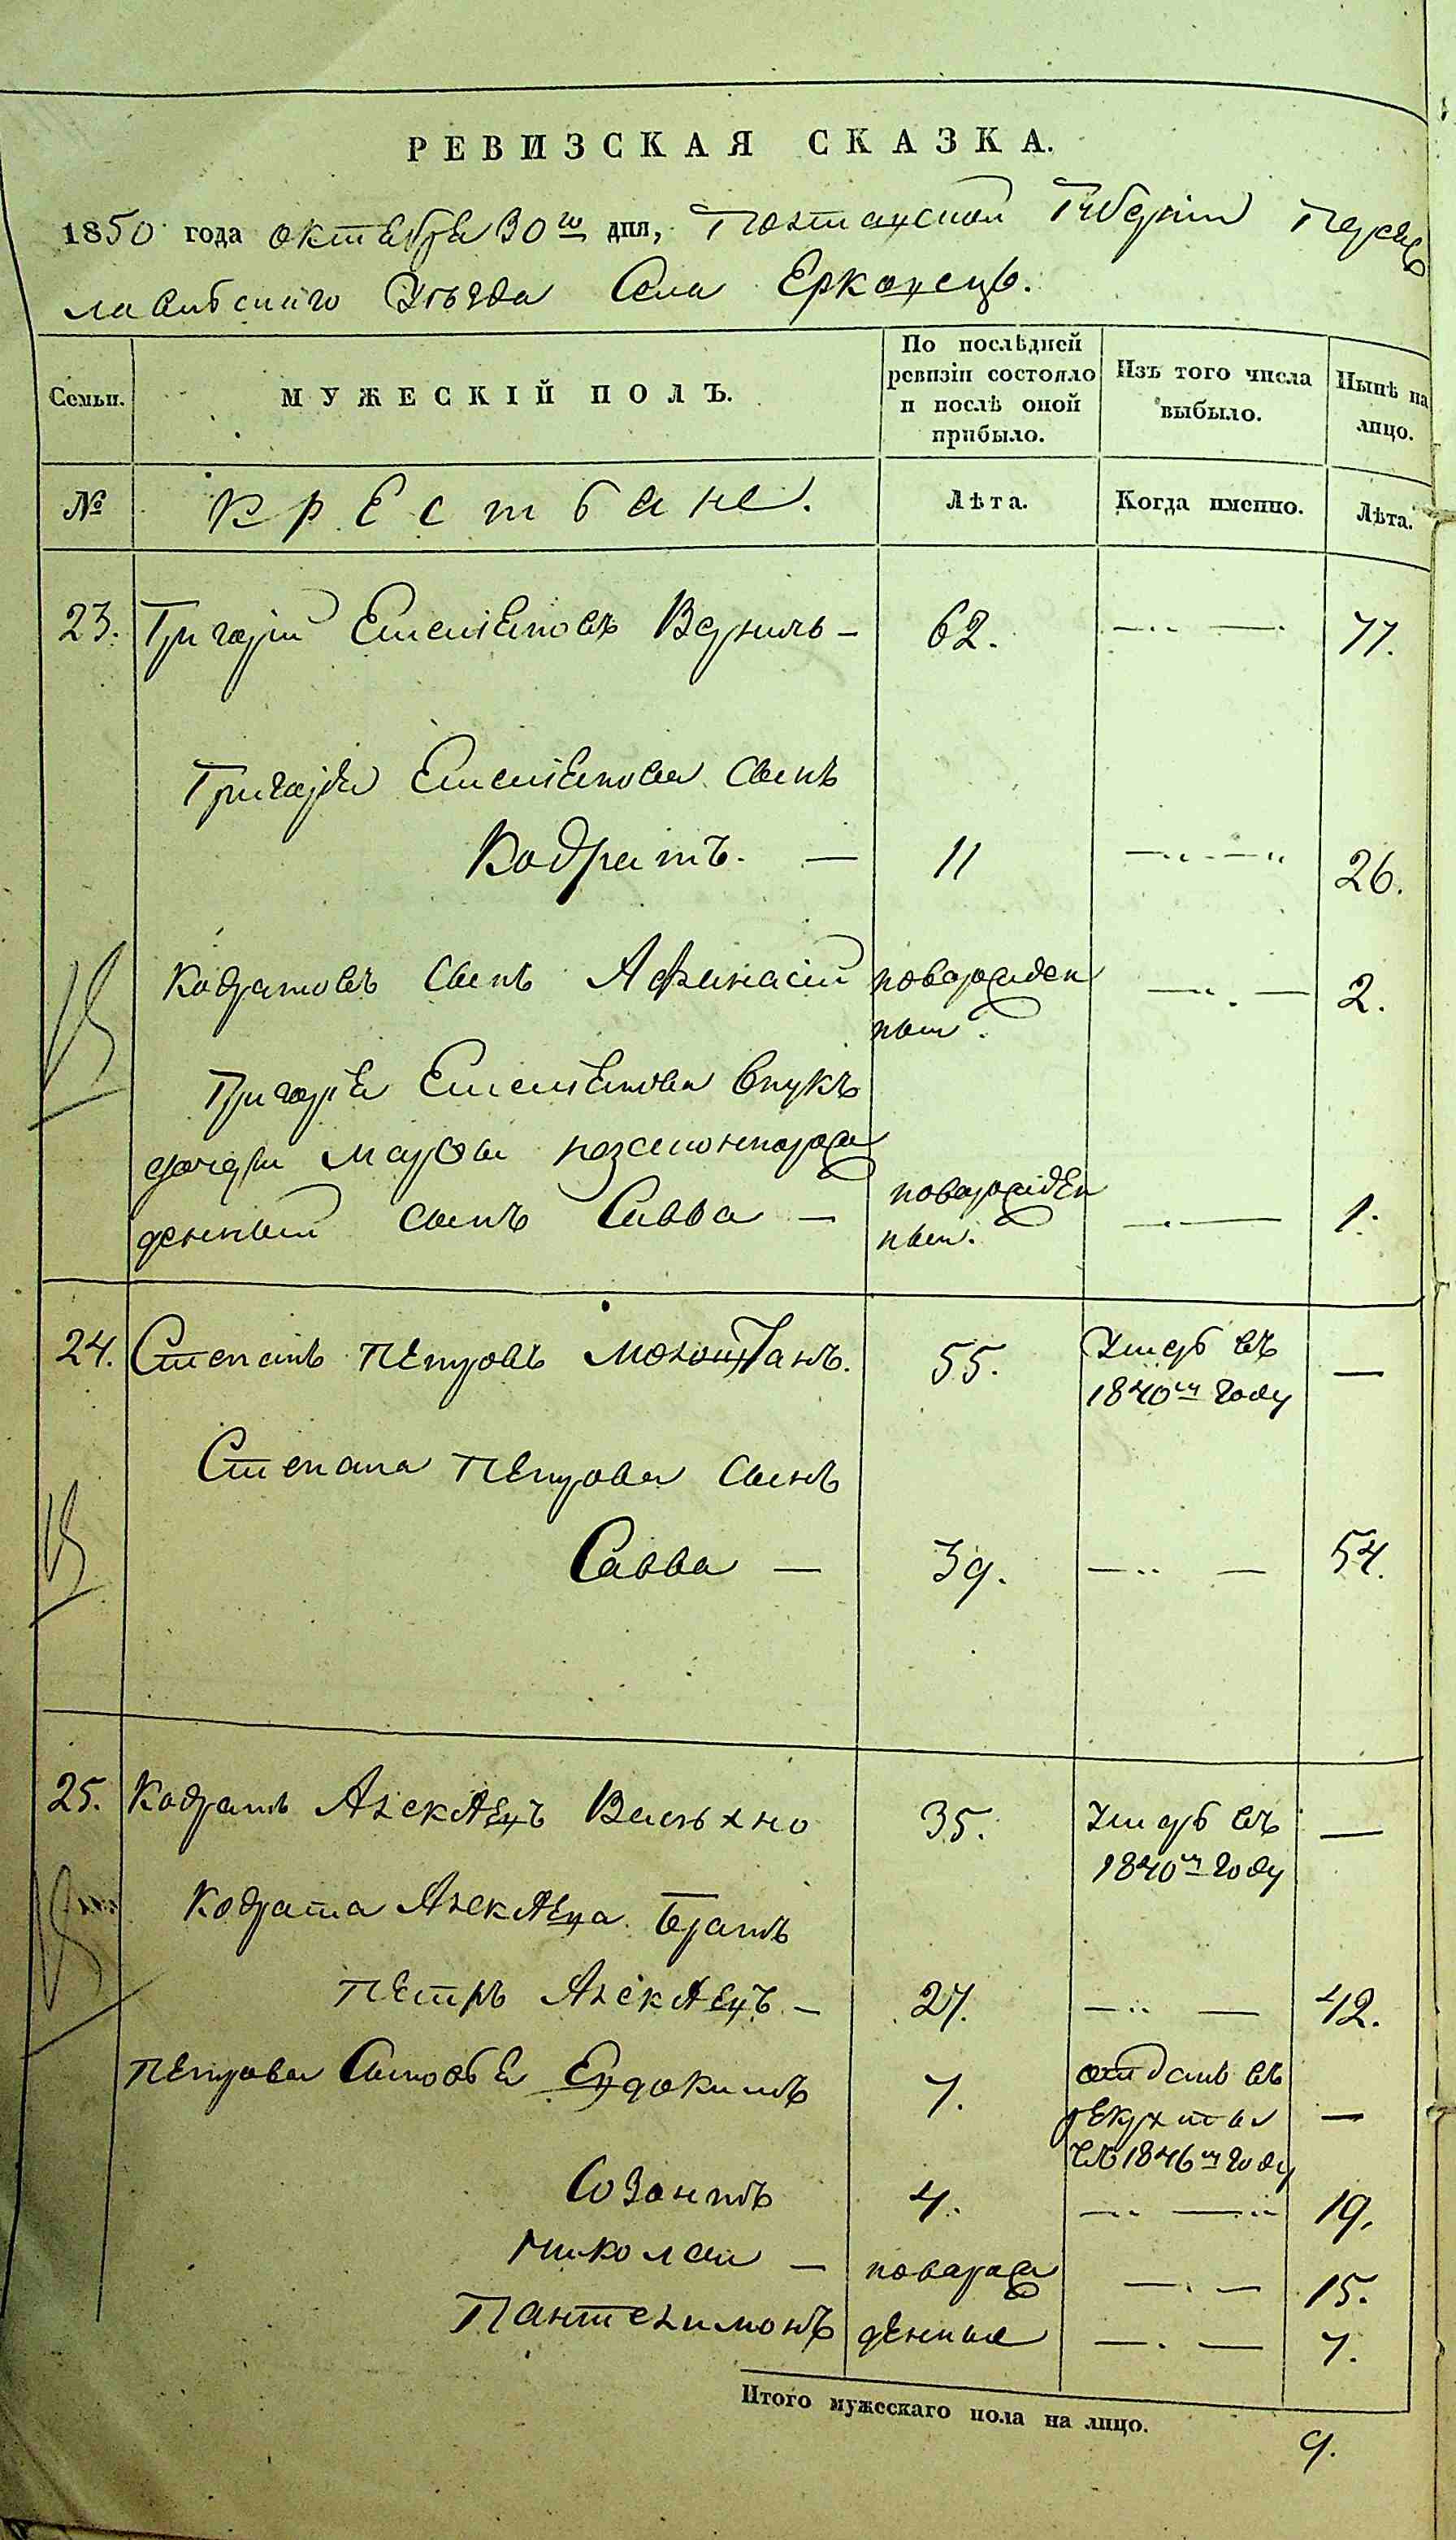 РЕВИЗСКАЯ СКАЗКА.
1850 года октября 30го дня, Полтавской Губерніи Переяс
лавскаго Уѣзда Села Ерковець.
Семьи.
МУЖЕСКІЙ ПОЛЪ.
По послѣдней
ревизіи состояло
и послѣ оной
прибыло.
Изъ того числа
выбыло.
Нынѣ на
лицо.
№
Крестьяне.
Лѣта.
Когда именно.
Лѣта.
23. Григорій Емельяновъ — 62. — 77.
Григорія Емельянова сынъ
Кодратъ. — 11 — 26.
Кодратовъ сынъ Афанасій новорожден
ный. — 2.
Григорія Емельянова внукъ
дочери Марфы незаконнорож
денный сынъ Савва — новорожден
ный. — 1.
24. Степанъ Петровъ 55. Умеръ въ
1840м году —
Степана Петрова сынъ
Савва — 39. — 54.
25. Кодратъ Алексѣевъ Вальхно 35. Умеръ въ
1840м году —
Кодрата Алексѣева братъ
Петръ Алексѣевъ — 27. — 42.
Петрова Сыновья Евдокимъ 7. отданъ въ
рекруты —
въ 1846м году
Созонтъ 4. — 19.
Николай — новорож — 15.
Пантелимонъ денные — 7.
Итого мужескаго пола на лицо.
9.